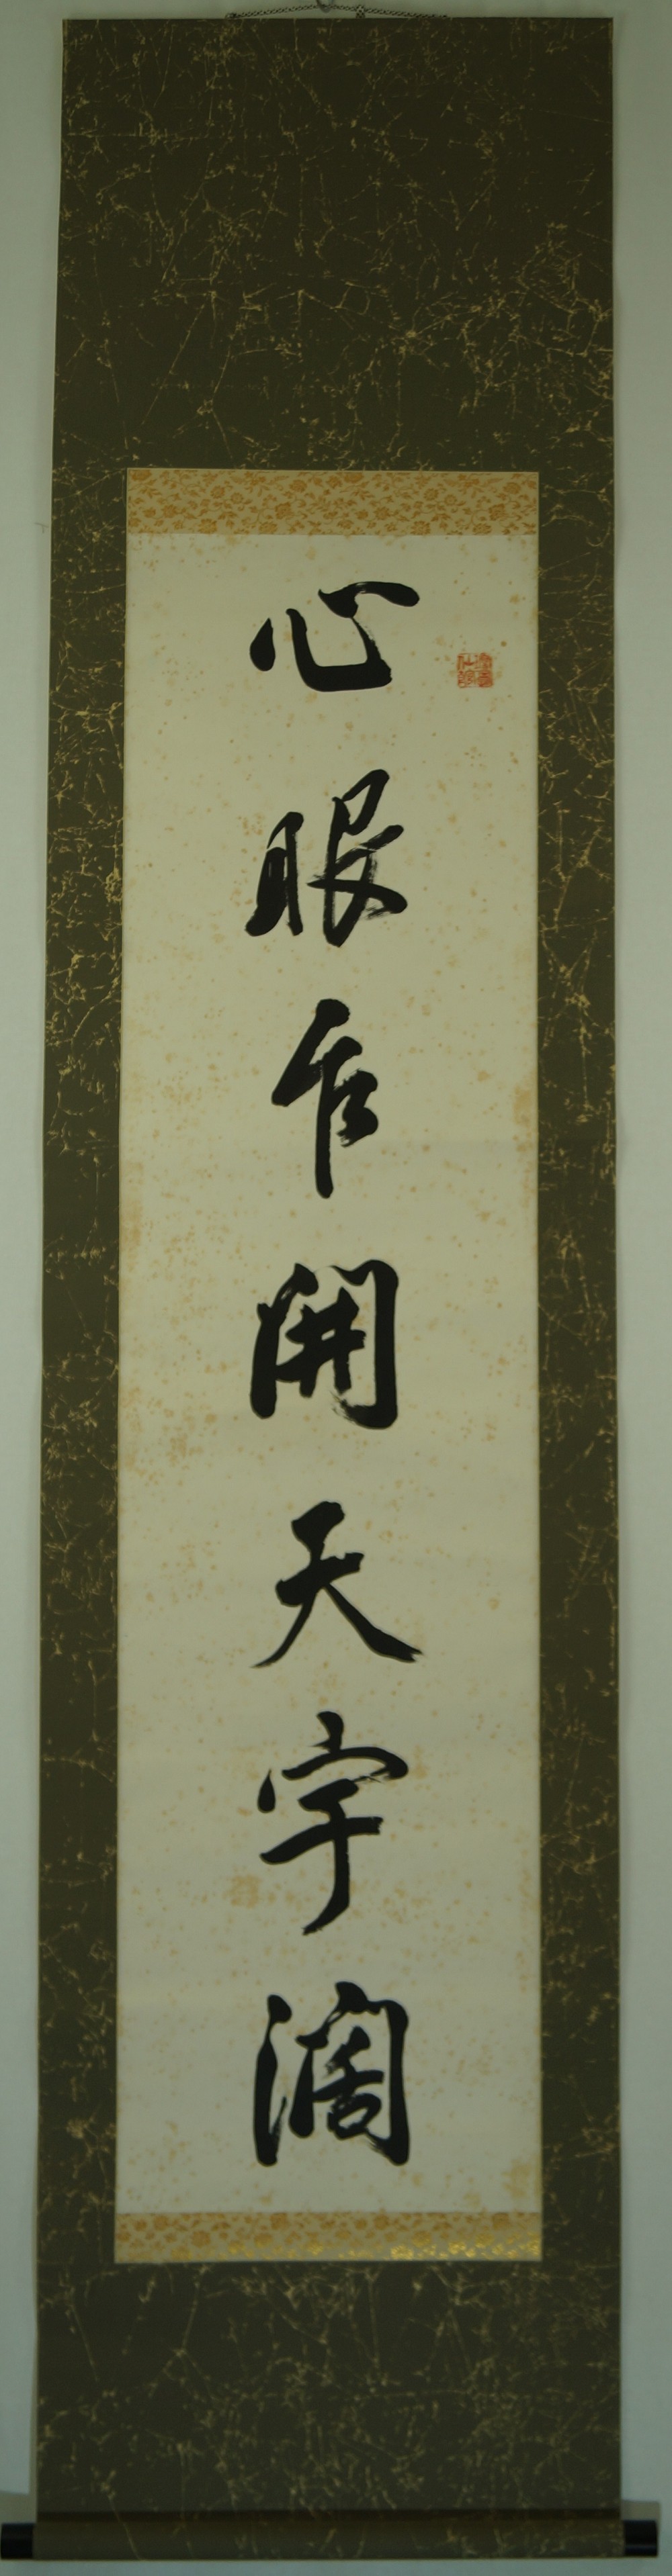 心眼乍開天宇濶